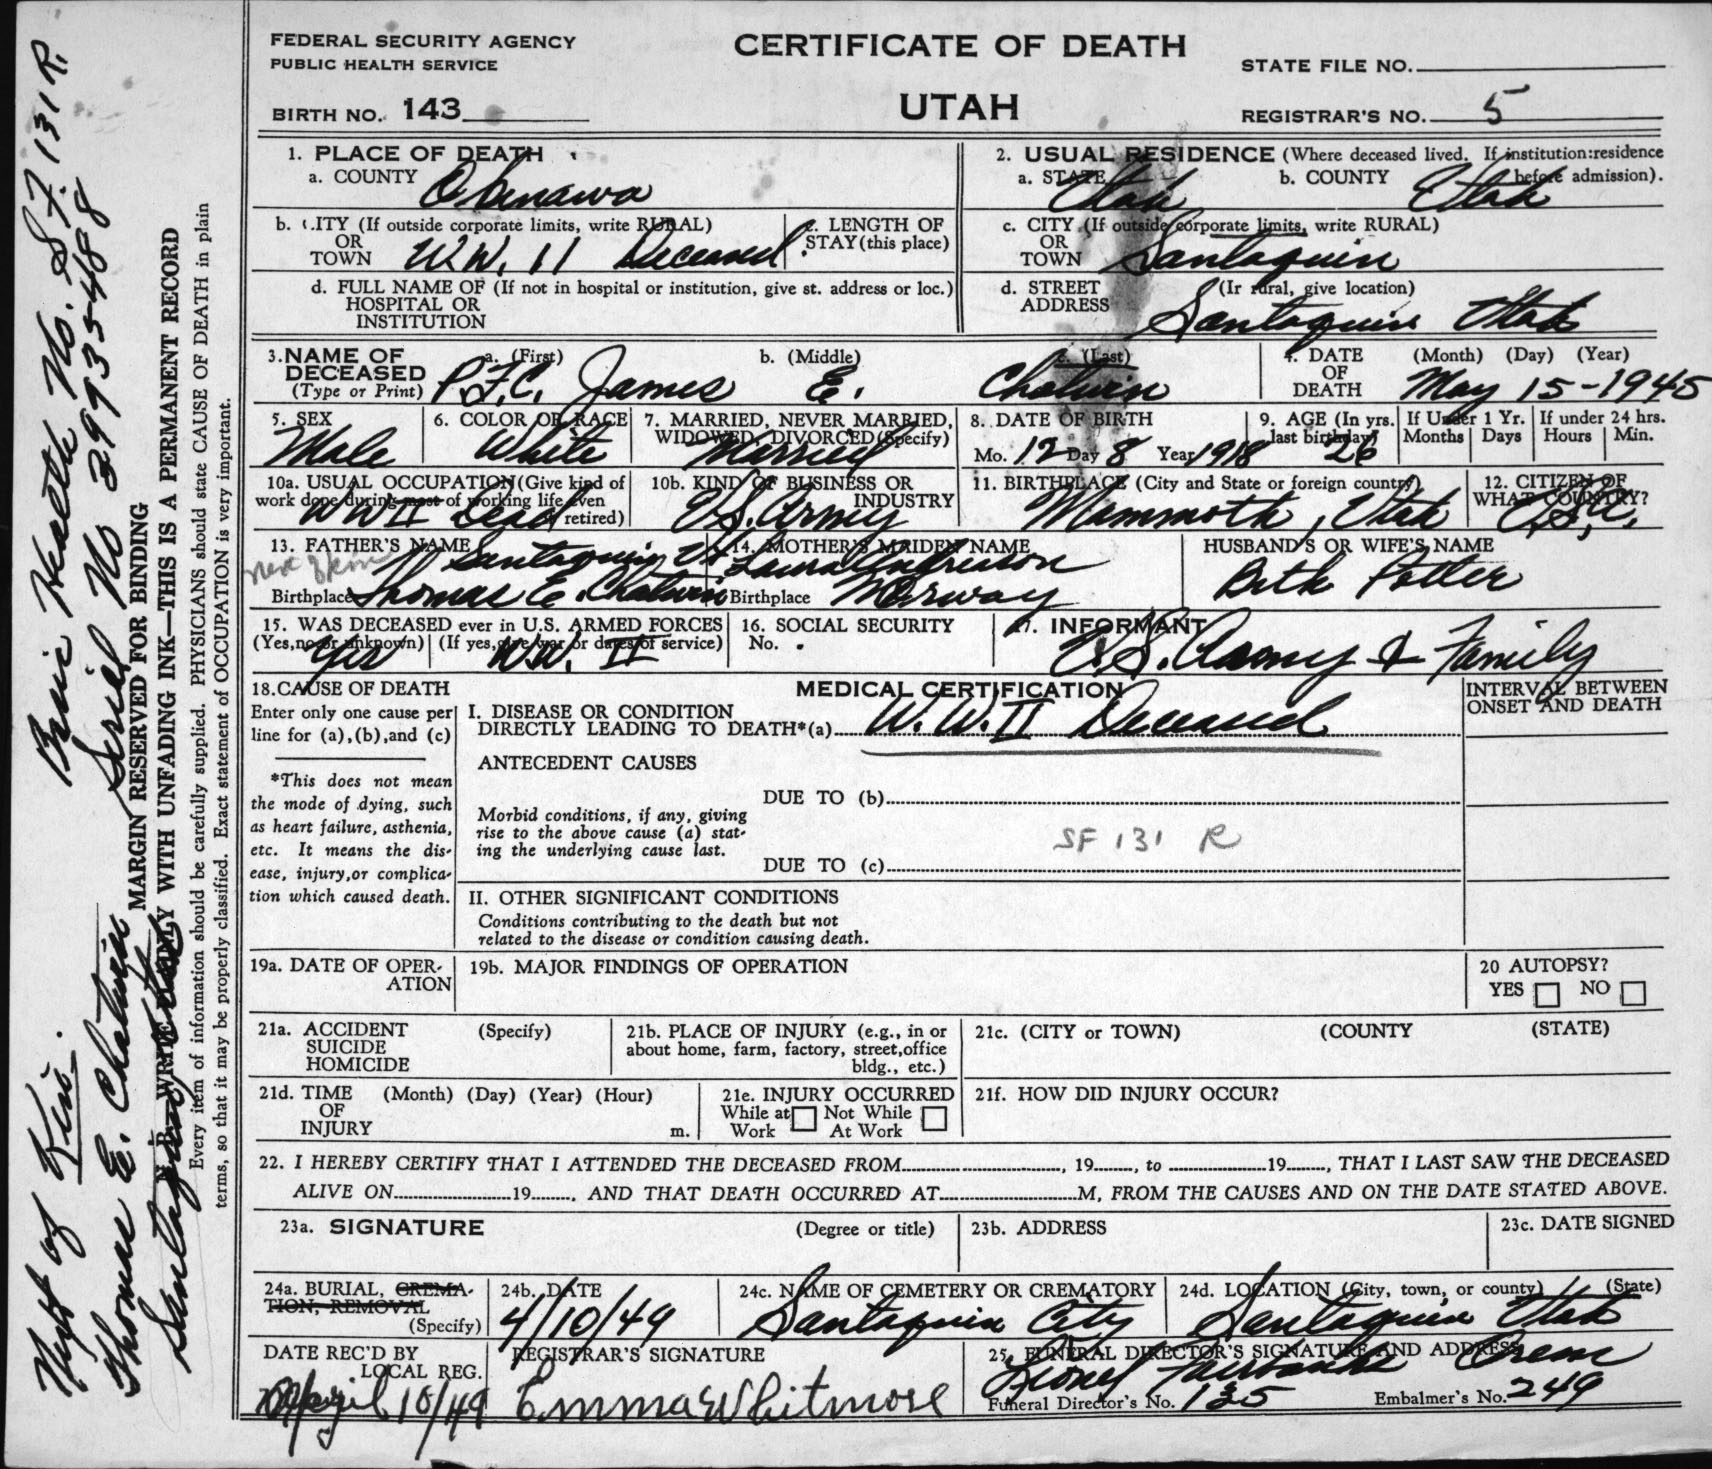 FEDERAL SECURITY AGENCY
PUBLIC HEALTH SERVICE
CERTIFICATE OF DEATH
UTAH
STATE FILE NO.
BIRTH NO. 143
REGISTRAR'S NO. 5
1. PLACE OF DEATH
a. COUNTY Okinawa
b. CITY (If outside corporate limits, write RURAL)
OR
TOWN W.W. 11 Deceased
c. LENGTH OF
STAY (this place)
d. FULL NAME OF (If not in hospital or institution, give st. address or loc.)
HOSPITAL OR
INSTITUTION
2. USUAL RESIDENCE (Where deceased lived. If institution: residence
before admission).
a. STATE Utah b. COUNTY Utah
c. CITY (If outside corporate limits, write RURAL)
OR
TOWN Santaquin
d. STREET (If rural, give location)
ADDRESS Santaquin Utah
3. NAME OF a. (First) b. (Middle) c. (Last)
DECEASED
(Type or Print) P.F.C. James E. Chatwin
4. DATE (Month) (Day) (Year)
OF
DEATH May 15-1945
5. SEX
Male
6. COLOR OR RACE
White
7. MARRIED, NEVER MARRIED,
WIDOWED, DIVORCED (Specify)
Married
8. DATE OF BIRTH
Mo. 12 Day 8 Year 1918
9. AGE (In yrs.
last birthday)
26
If Under 1 Yr.
Months Days
If under 24 hrs.
Hours Min.
10a. USUAL OCCUPATION (Give kind of
work done during most of working life even
retired)
WW II Dead
10b. KIND OF BUSINESS OR
INDUSTRY
U.S. Army
11. BIRTHPLACE (City and State or foreign country)
Mammoth, Utah
12. CITIZEN OF
WHAT COUNTRY?
U.S.A.
13. FATHER'S NAME Santaquin Ut
next of kin Thomas E. Chatwin
Birthplace
14. MOTHER'S MAIDEN NAME
Laura
Birthplace Norway
HUSBAND'S OR WIFE'S NAME
Beth Potter
15. WAS DECEASED ever in U.S. ARMED FORCES
(Yes, no or unknown) (If yes, give war or dates of service)
Yes W.W. II
16. SOCIAL SECURITY
No.
17. INFORMANT
U.S. Army & Family
18. CAUSE OF DEATH
Enter only one cause per
line for (a), (b), and (c)
*This does not mean
the mode of dying, such
as heart failure, asthenia,
etc. It means the dis-
ease, injury, or complica-
tion which caused death.
MEDICAL CERTIFICATION
I. DISEASE OR CONDITION
DIRECTLY LEADING TO DEATH*(a) W.W.II Deceased
ANTECEDENT CAUSES
DUE TO (b)
Morbid conditions, if any, giving
rise to the above cause (a) stat-
ing the underlying cause last.
SF 131 R
DUE TO (c)
II. OTHER SIGNIFICANT CONDITIONS
Conditions contributing to the death but not
related to the disease or condition causing death.
INTERVAL BETWEEN
ONSET AND DEATH
19a. DATE OF OPER-
ATION
19b. MAJOR FINDINGS OF OPERATION
20 AUTOPSY?
YES NO
21a. ACCIDENT (Specify)
SUICIDE
HOMICIDE
21b. PLACE OF INJURY (e.g., in or
about home, farm, factory, street, office
bldg., etc.)
21c. (CITY or TOWN) (COUNTY (STATE)
21d. TIME (Month) (Day) (Year) (Hour)
OF
INJURY m.
21e. INJURY OCCURRED
While at Not While
Work At Work
21f. HOW DID INJURY OCCUR?
22. I HEREBY CERTIFY THAT I ATTENDED THE DECEASED FROM , 19 , to 19 , THAT I LAST SAW THE DECEASED
ALIVE ON 19 , AND THAT DEATH OCCURRED AT M, FROM THE CAUSES AND ON THE DATE STATED ABOVE.
23a. SIGNATURE (Degree or title)
23b. ADDRESS
23c. DATE SIGNED
24a. BURIAL, CREMA-
TION, REMOVAL
(Specify)
24b. DATE
4/10/49
24c. NAME OF CEMETERY OR CREMATORY
Santaquin City
24d. LOCATION (City, town, or county) (State)
Santaquin Utah
DATE REC'D BY
LOCAL REG.
April 10/49
REGISTRAR'S SIGNATURE
Emma Whitmore
25. FUNERAL DIRECTOR'S SIGNATURE AND ADDRESS
Fairbanks Orem
Funeral Director's No. 135 Embalmer's No. 249
Health No. S.F. 131 R.
Serial No 39935488
MARGIN RESERVED FOR BINDING
N. B.—WRITE PLAINLY WITH UNFADING INK—THIS IS A PERMANENT RECORD
Every item of information should be carefully supplied. PHYSICIANS should state CAUSE OF DEATH in plain
terms, so that it may be properly classified. Exact statement of OCCUPATION is very important.
Next of Kin.
Thomas E. Chatwin
Santaquin Utah